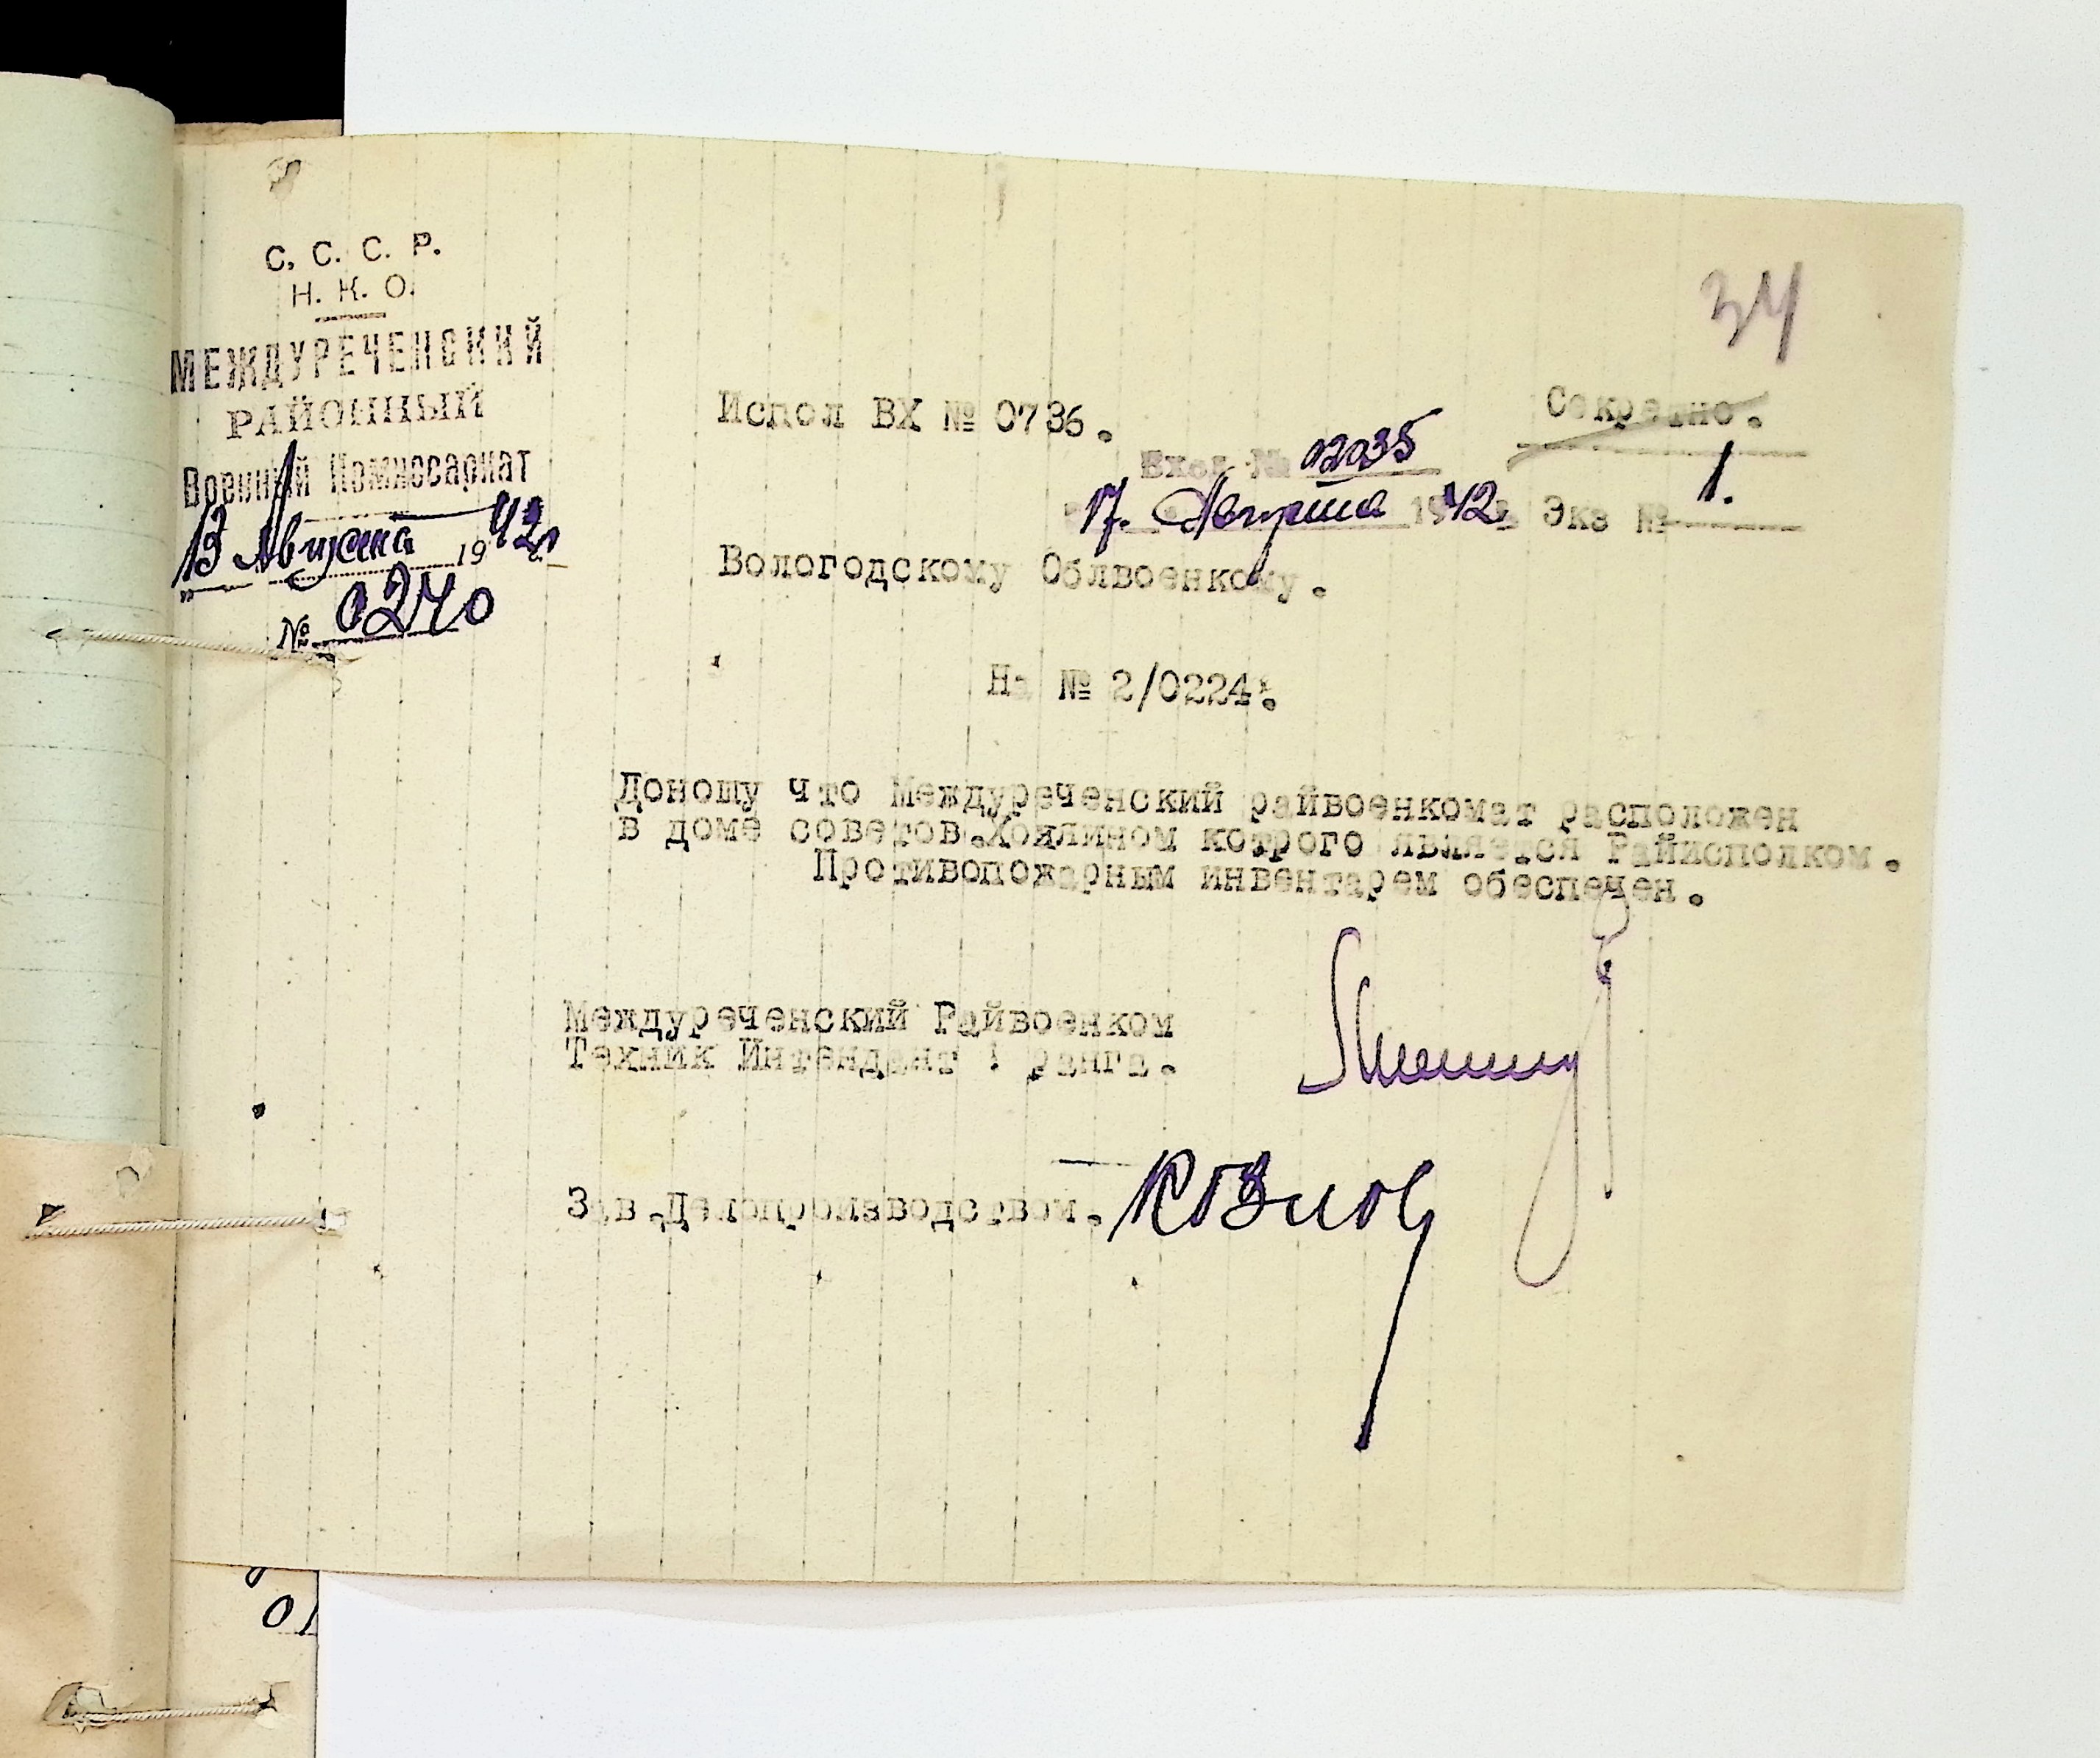 С. С. С. Р.
Н. К. О.
МЕЖДУРЕЧЕНСКИЙ
РАЙОННЫЙ
Военный Комиссариат
13 Августа 1942
№ 0240
34
Испол ВХ № 0736.
Секретно.
Вход № 02035
17. Августа 1942 Экз № 1.
Вологодскому Облвоенкому.
На № 2/0224.
Доношу что Междуреченский райвоенкомат расположен
в доме советов.Хоялином котрого является Райисполком.
Противопожарным инвентарем обеспечен.
Междуреченский Райвоенком
Техник Интендант 1 ранга.
Зав.Делопроизводством.